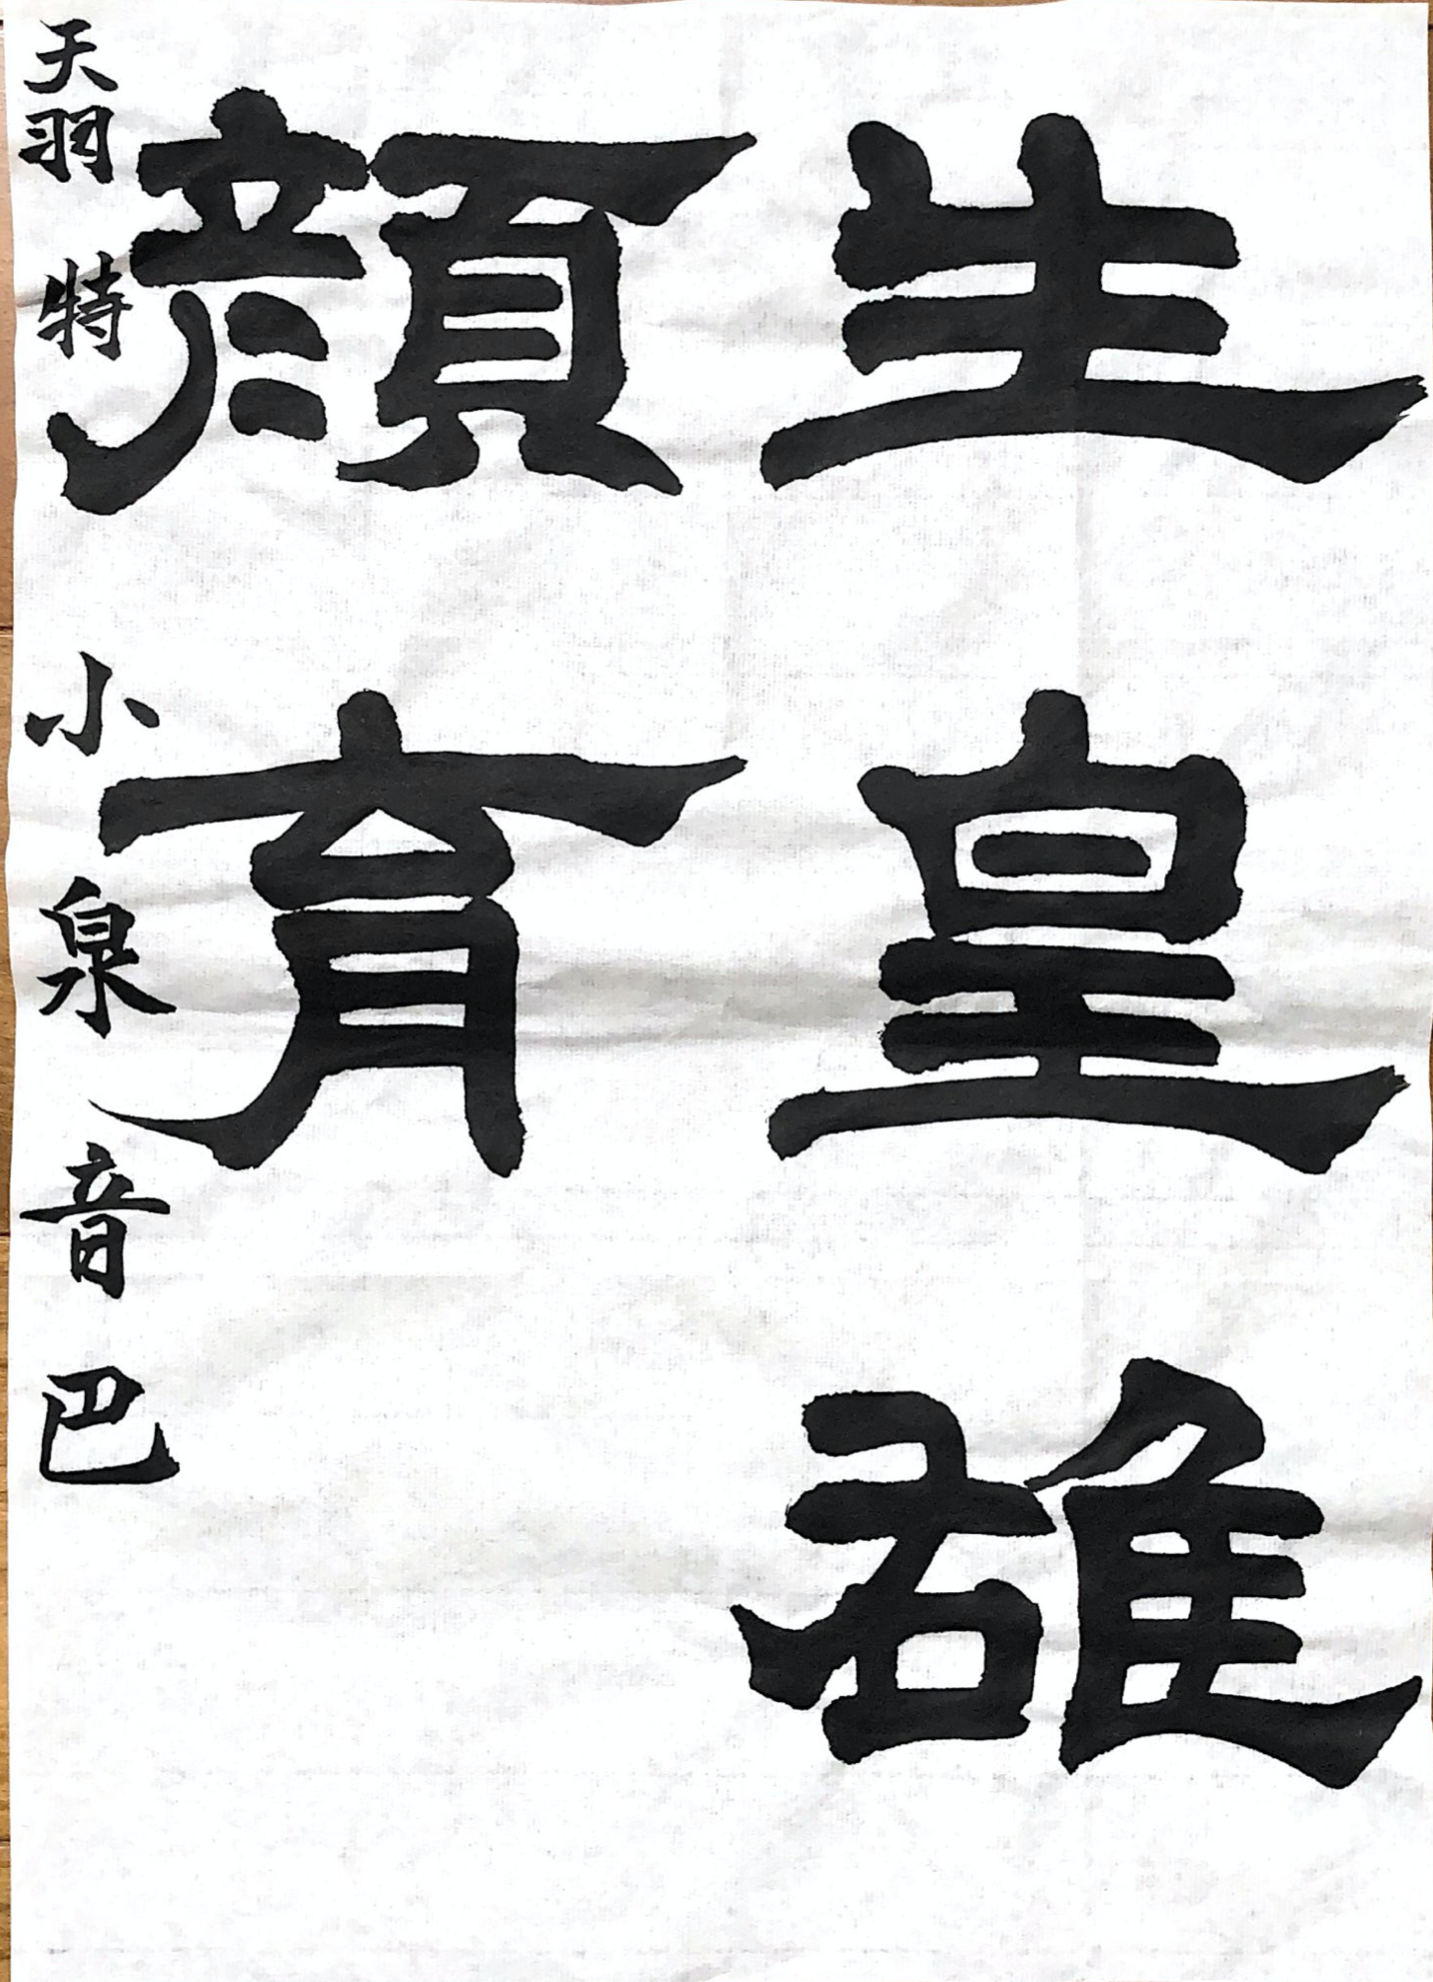 生皇雄
顔育
天羽 特 小泉音巴